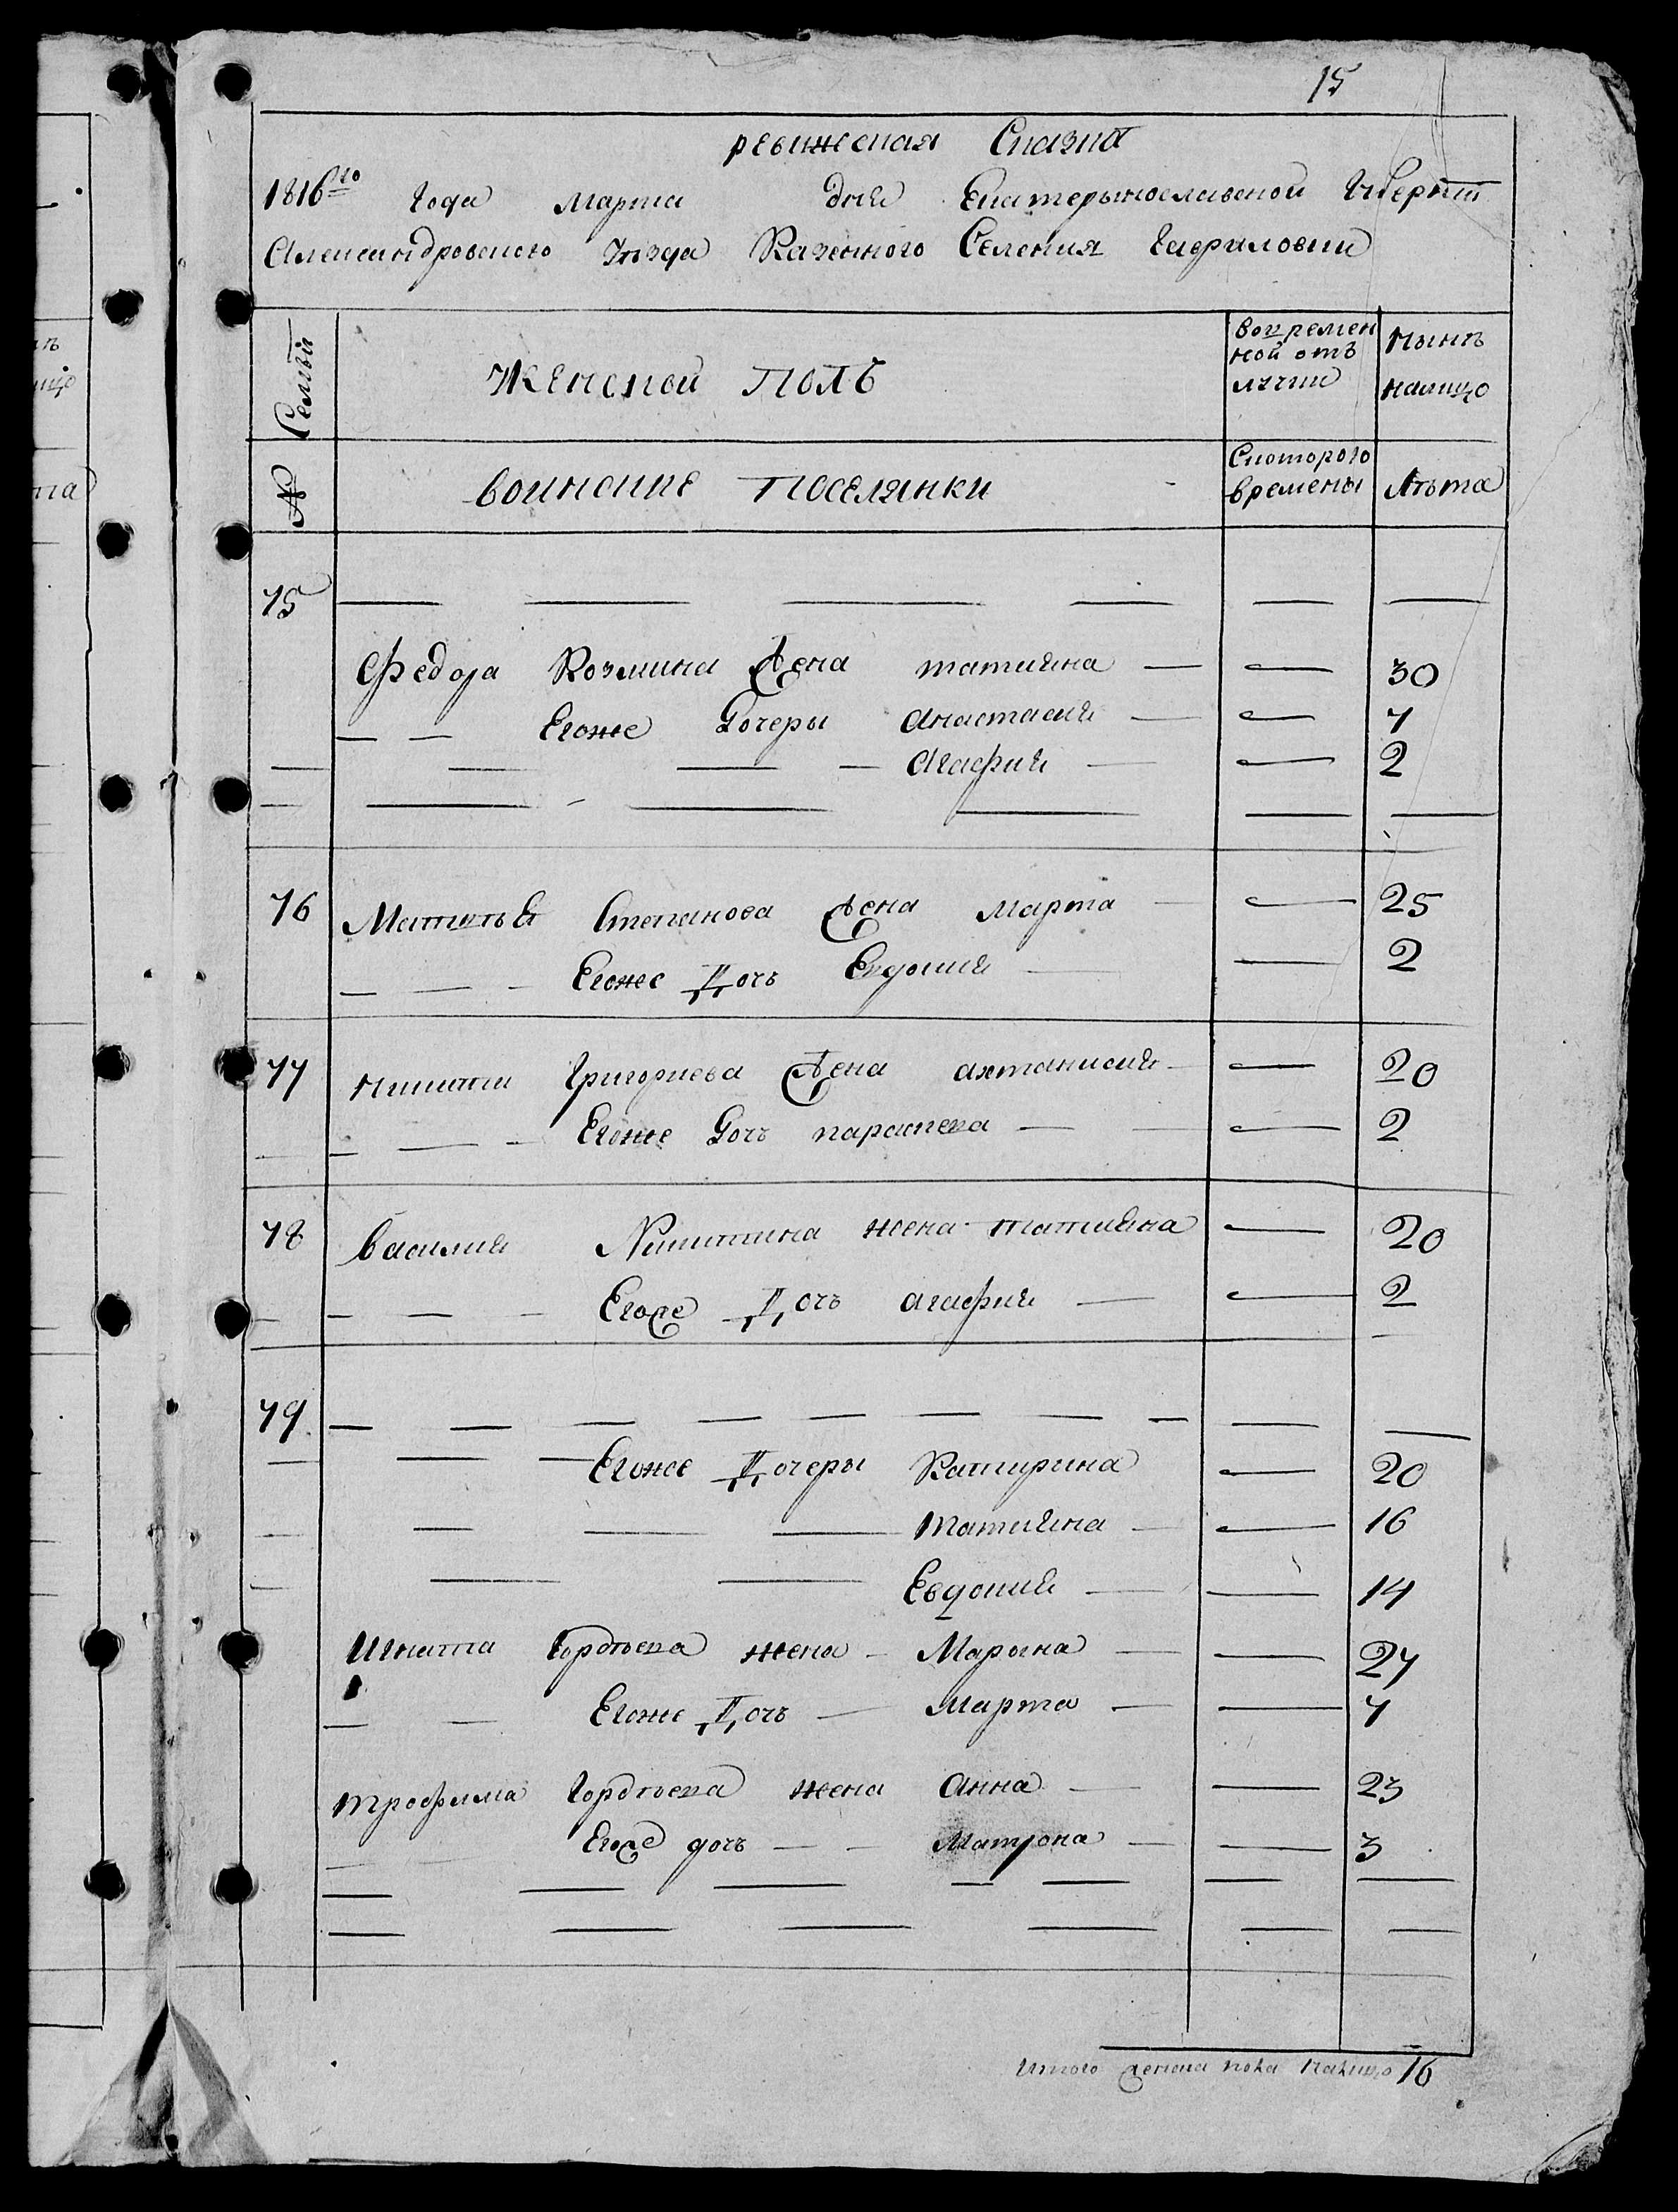 15
ревижская Сказка
1816го года марта дня Екатерынославской Губернии
Александровского уезда Казенного Селения Гавриловки
Семьи
Женской полъ
вовремен
ной отъ
лучки
нынъ
налицо
№
воинские поселянки
Скоторого
времены
Лъта
75
Федора Козмина жена татияна — — 30
— — Егоже дочеры анастасия — — 7
— — — — агафия — — 2
76 Матвъя Степанова жена марта — — 25
— — — Егоже Дочъ Евдокия — — 2
77 никиты Григориева жена ахтанисия — — 20
— — — Егоже дочъ параскева — — — 2
78 василия Никитина жена татияна — 20
— — — Егоже Дочъ агафия — — 2
79 — — — — — — — — — —
— — — Егоже Дочеры Катирина — 20
— — — — татияна — — 16
— — — Евдокия — — 14
Игната Гордъева жена — Марына — — 27
— — Егоже Дочъ — марта — — 7
трофима Гордъева жена анна — — 23
— — Егоже дочъ — — матрона — — 3
Итого женска пола налицо 16
нъ
лицо
та